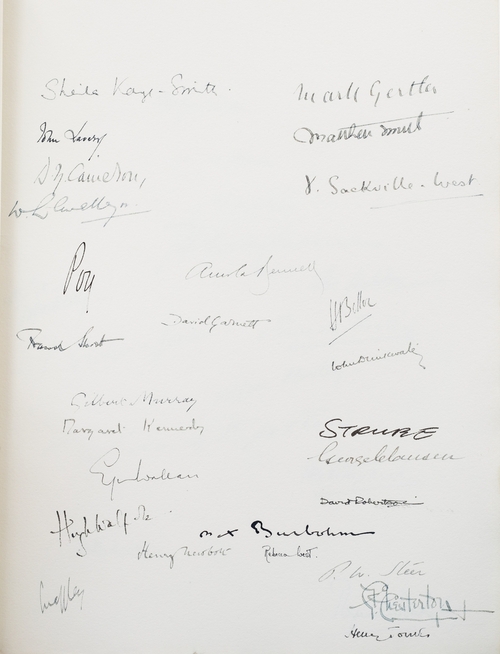 Sheila Kaye-Smith.
Mark Gertler
John Lavery
Matthew Smith
D Y Cameron,
V. Sackville-West
W L
Poy
Arnold Bennett
H Belloc
David Garnett
Francis Short
John Drinkwater
Gilbert Murray
Margaret Kennedy
STRUBE
George Clausen
David Robertson
Hugh Walpole
Max Beerbohm
Henry Newbolt
Rebecca West.
P. W. Steer
G K Chesterton
Henry Tonks